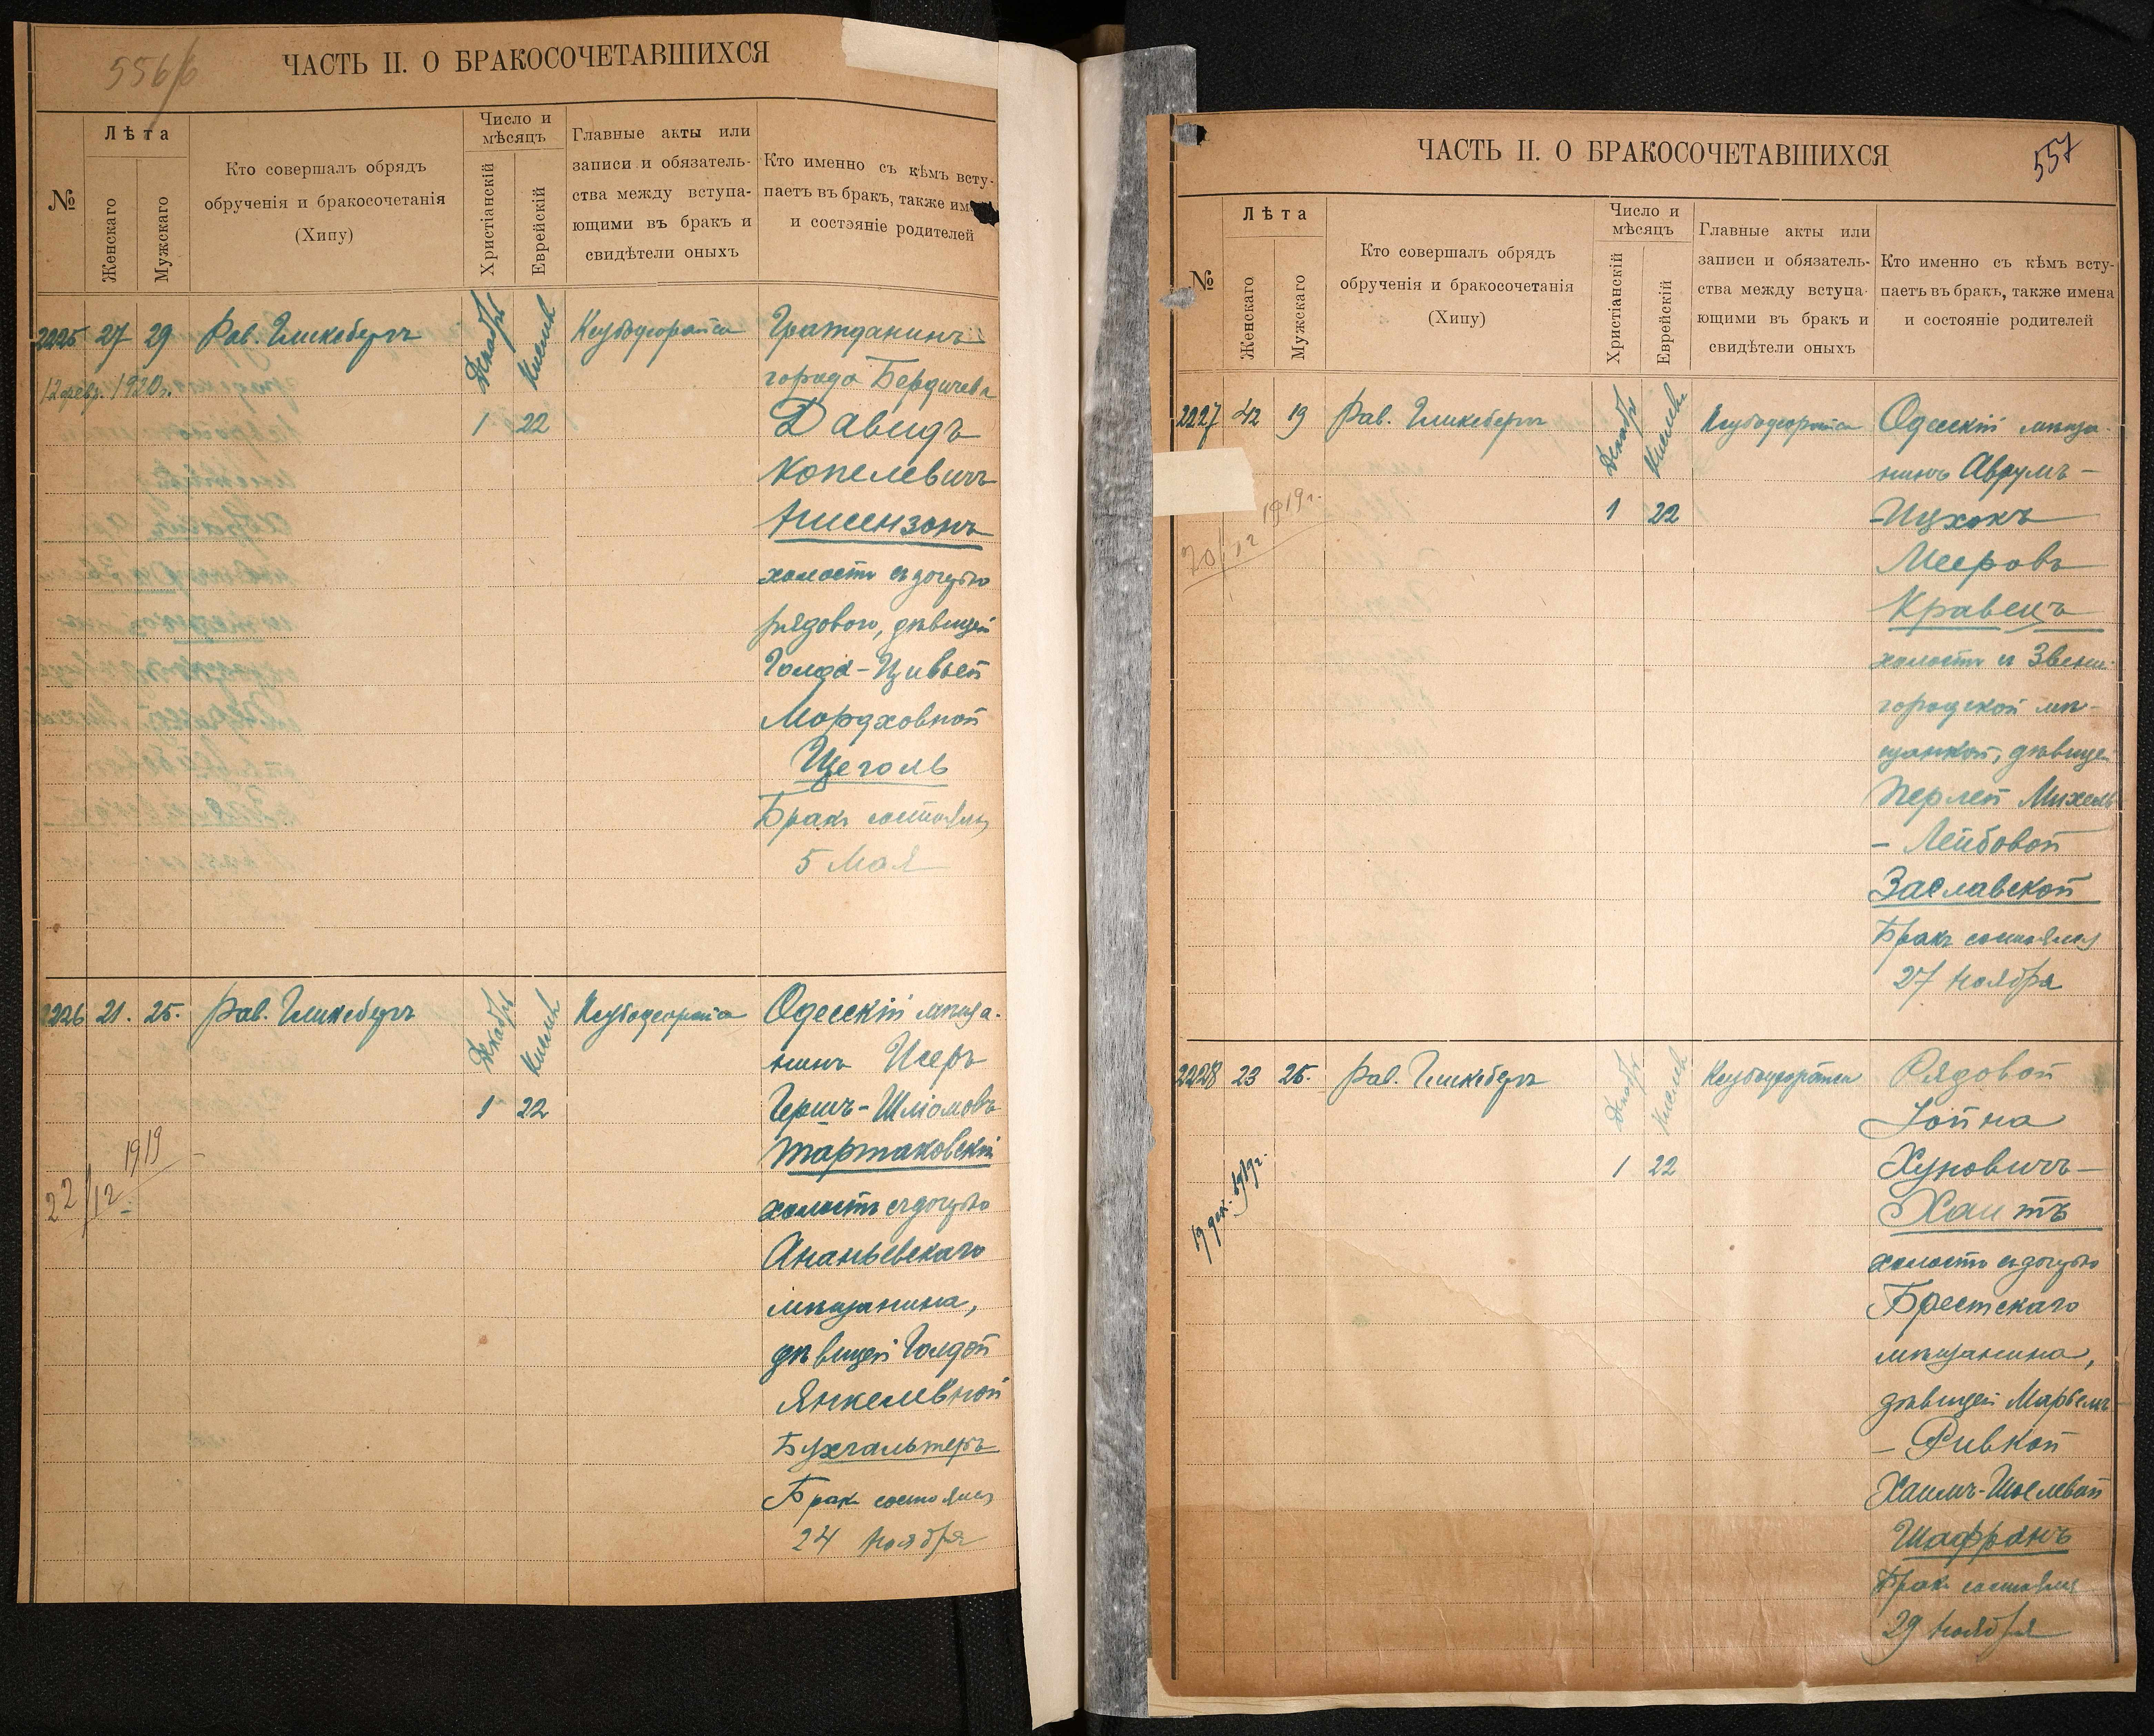 556/б
ЧАСТЬ II. О БРАКОСОЧЕТАВШИХСЯ
№
Лѣта
Женскаго
Мужскаго
Кто совершалъ обрядъ
обрученія и бракосочетанія
(Хипу)
Число и
мѣсяцъ
Христіанскій
Еврейскій
Главные акты или
записи и обязатель-
ства между вступа-
ющими въ бракъ и
свидѣтели оныхъ
Кто именно съ кѣмъ всту-
паетъ въ бракъ, также им
и состояніе родителей
2225 27 29 Рав. Гликсбергъ Декабрь Кислевъ
12 февр. 1920 г.
1 22
Гражданинъ
города Бердичева
Давидъ
Копелевичъ
Айсензонъ
холостъ съ дочерью
рядового, дѣвицей
Голда-Цивьей
Мордховной
Щеголь
Бракъ состоялся
5 Мая
2226 21. 25. Рав. Гликсбергъ Декабрь Кислевъ
1 22
22/12 1919
Одесскій мѣща-
нинъ Исеръ
Гершъ-Шліомовъ
Тартаковскій
холостъ съ дочерью
Ананьевскаго
мѣщанина,
дѣвицей Голдой
Янкелевной
Бухгальтеръ
Бракъ состоялся
24 Ноября
557
ЧАСТЬ II. О БРАКОСОЧЕТАВШИХСЯ
№
Лѣта
Женскаго
Мужскаго
Кто совершалъ обрядъ
обрученія и бракосочетанія
(Хипу)
Число и
мѣсяцъ
Христіанскій
Еврейскій
Главные акты или
записи и обязатель-
ства между вступа-
ющими въ бракъ и
свидѣтели оныхъ
Кто именно съ кѣмъ всту-
паетъ въ бракъ, также имена
и состояніе родителей
2227 42 19 Рав. Гликсбергъ Декабрь Кислевъ
1 22
20/12 1919 г.
Одесскій мѣща-
нинъ Аврумъ-
-Ицхокъ
Мееровъ
Кравецъ
холостъ съ Звени-
городской мѣ-
щанкой, дѣвицей
Перлей Михель
- Лейбовой
Заславской
Бракъ состоялся
27 Ноября
2228 23 25. Рав. Гликсбергъ Декабрь Кислевъ
1 22
19 дек. 1919 г.
Рядовой
Іойна
Хуновичъ-
Хаитъ
холостъ съ дочерью
Брестскаго
мѣщанина,
дѣвицей Марьемъ
- Ривкой
Хаимъ-Шоелевой
Шафранъ
Бракъ состоялся
29 Ноября